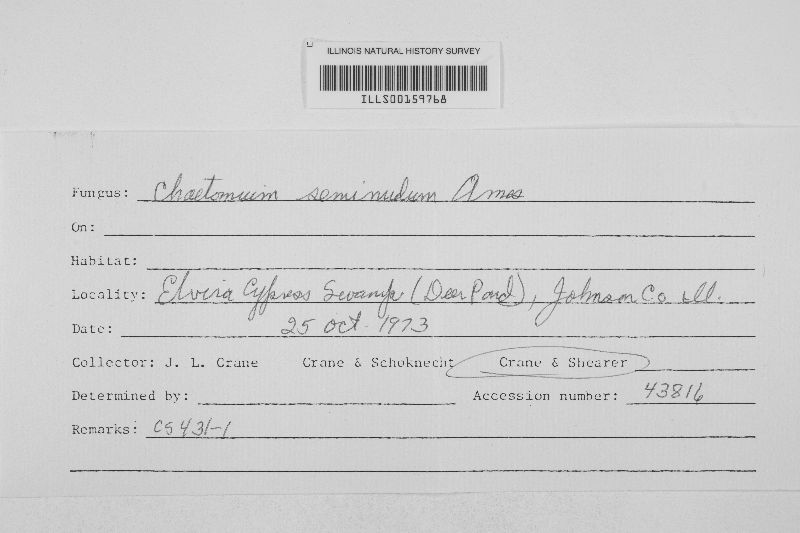 ILLINOIS NATURAL HISTORY SURVEY
ILLS00159768
Fungus: Chaetomium seminudum Ames
On:
Habitat:
Locality: Elvira Cypress Swamp (Deer Pond), Johnson Co Ill.
Date: 25 Oct. 1973
Collector: J. L. Crane Crane & Schoknecht Crane & Shearer
Determined by: Accession number: 43816
Remarks: CS431-1